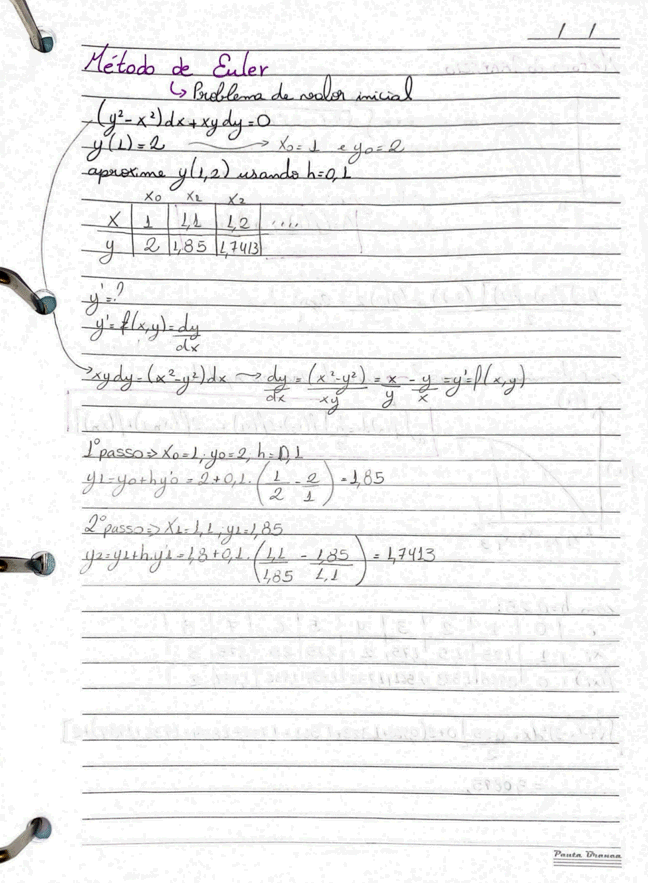 / /
Método de Euler
↳ Problema de valor inicial
(y²-x²)dx+xydy=0
y(1)=2 → x0=1 e y0=2
aproxime y(1,2) usando h=0,1
x0 x1 x2
x 1 1,1 1,2 ....
y 2 1,85 1,7413
y'=?
y'=f(x,y)=dy/dx
xydy=(x²-y²)dx → dy/dx=(x²-y²)/xy=x/y-y/x=y'=f(x,y)
1º passo⇒ x0=1, y0=2, h=0,1
y1=y0+hy'0=2+0,1.(1/2-2/1)=1,85
2º passo⇒ x1=1,1, y1=1,85
y2=y1+h.y'1=1,8+0,1.(1,1/1,85-1,85/1,1)=1,7413
Pauta Branca